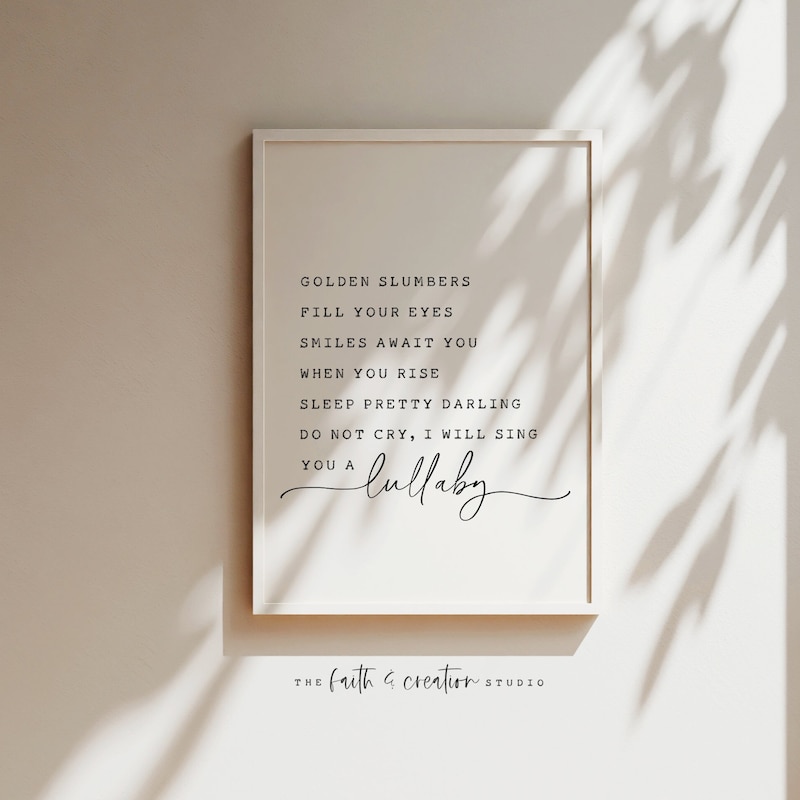 GOLDEN SLUMBERS
FILL YOUR EYES
SMILES AWAIT YOU
WHEN YOU RISE
SLEEP PRETTY DARLING
DO NOT CRY, I WILL SING
YOU A lullaby
THE faith & creation STUDIO